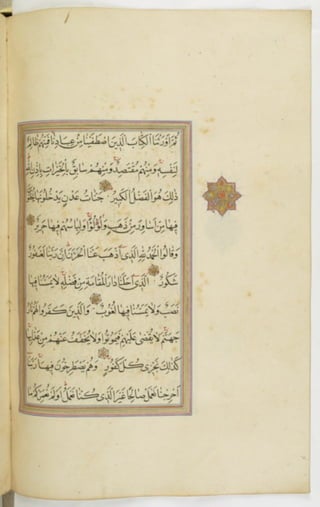 ثُمَّ أَوْرَثْنَا الْكِتَابَ الَّذِينَ اصْطَفَيْنَا مِنْ عِبَادِنَا فَمِنْهُمْ ظَالِمٌ
لِنَفْسِهِ وَمِنْهُمْ مُقْتَصِدٌ وَمِنْهُمْ سَابِقٌ بِالْخَيْرَاتِ بِإِذْنِ اللَّهِ
ذَلِكَ هُوَ الْفَضْلُ الْكَبِيرُ جَنَّاتُ عَدْنٍ يَدْخُلُونَهَا يُحَلَّوْنَ
فِيهَا مِنْ أَسَاوِرَ مِنْ ذَهَبٍ وَلُؤْلُؤًا وَلِبَاسُهُمْ فِيهَا حَرِيرٌ
وَقَالُوا الْحَمْدُ لِلَّهِ الَّذِي أَذْهَبَ عَنَّا الْحَزَنَ إِنَّ رَبَّنَا لَغَفُورٌ
شَكُورٌ الَّذِي أَحَلَّنَا دَارَ الْمُقَامَةِ مِنْ فَضْلِهِ لَا يَمَسُّنَا فِيهَا
نَصَبٌ وَلَا يَمَسُّنَا فِيهَا لُغُوبٌ وَالَّذِينَ كَفَرُوا لَهُمْ نَارُ
جَهَنَّمَ لَا يُقْضَى عَلَيْهِمْ فَيَمُوتُوا وَلَا يُخَفَّفُ عَنْهُمْ مِنْ عَذَابِهَا
كَذَلِكَ نَجْزِي كُلَّ كَفُورٍ وَهُمْ يَصْطَرِخُونَ فِيهَا رَبَّنَا
أَخْرِجْنَا نَعْمَلْ صَالِحًا غَيْرَ الَّذِي كُنَّا نَعْمَلُ أَوَلَمْ نُعَمِّرْكُمْ مَا